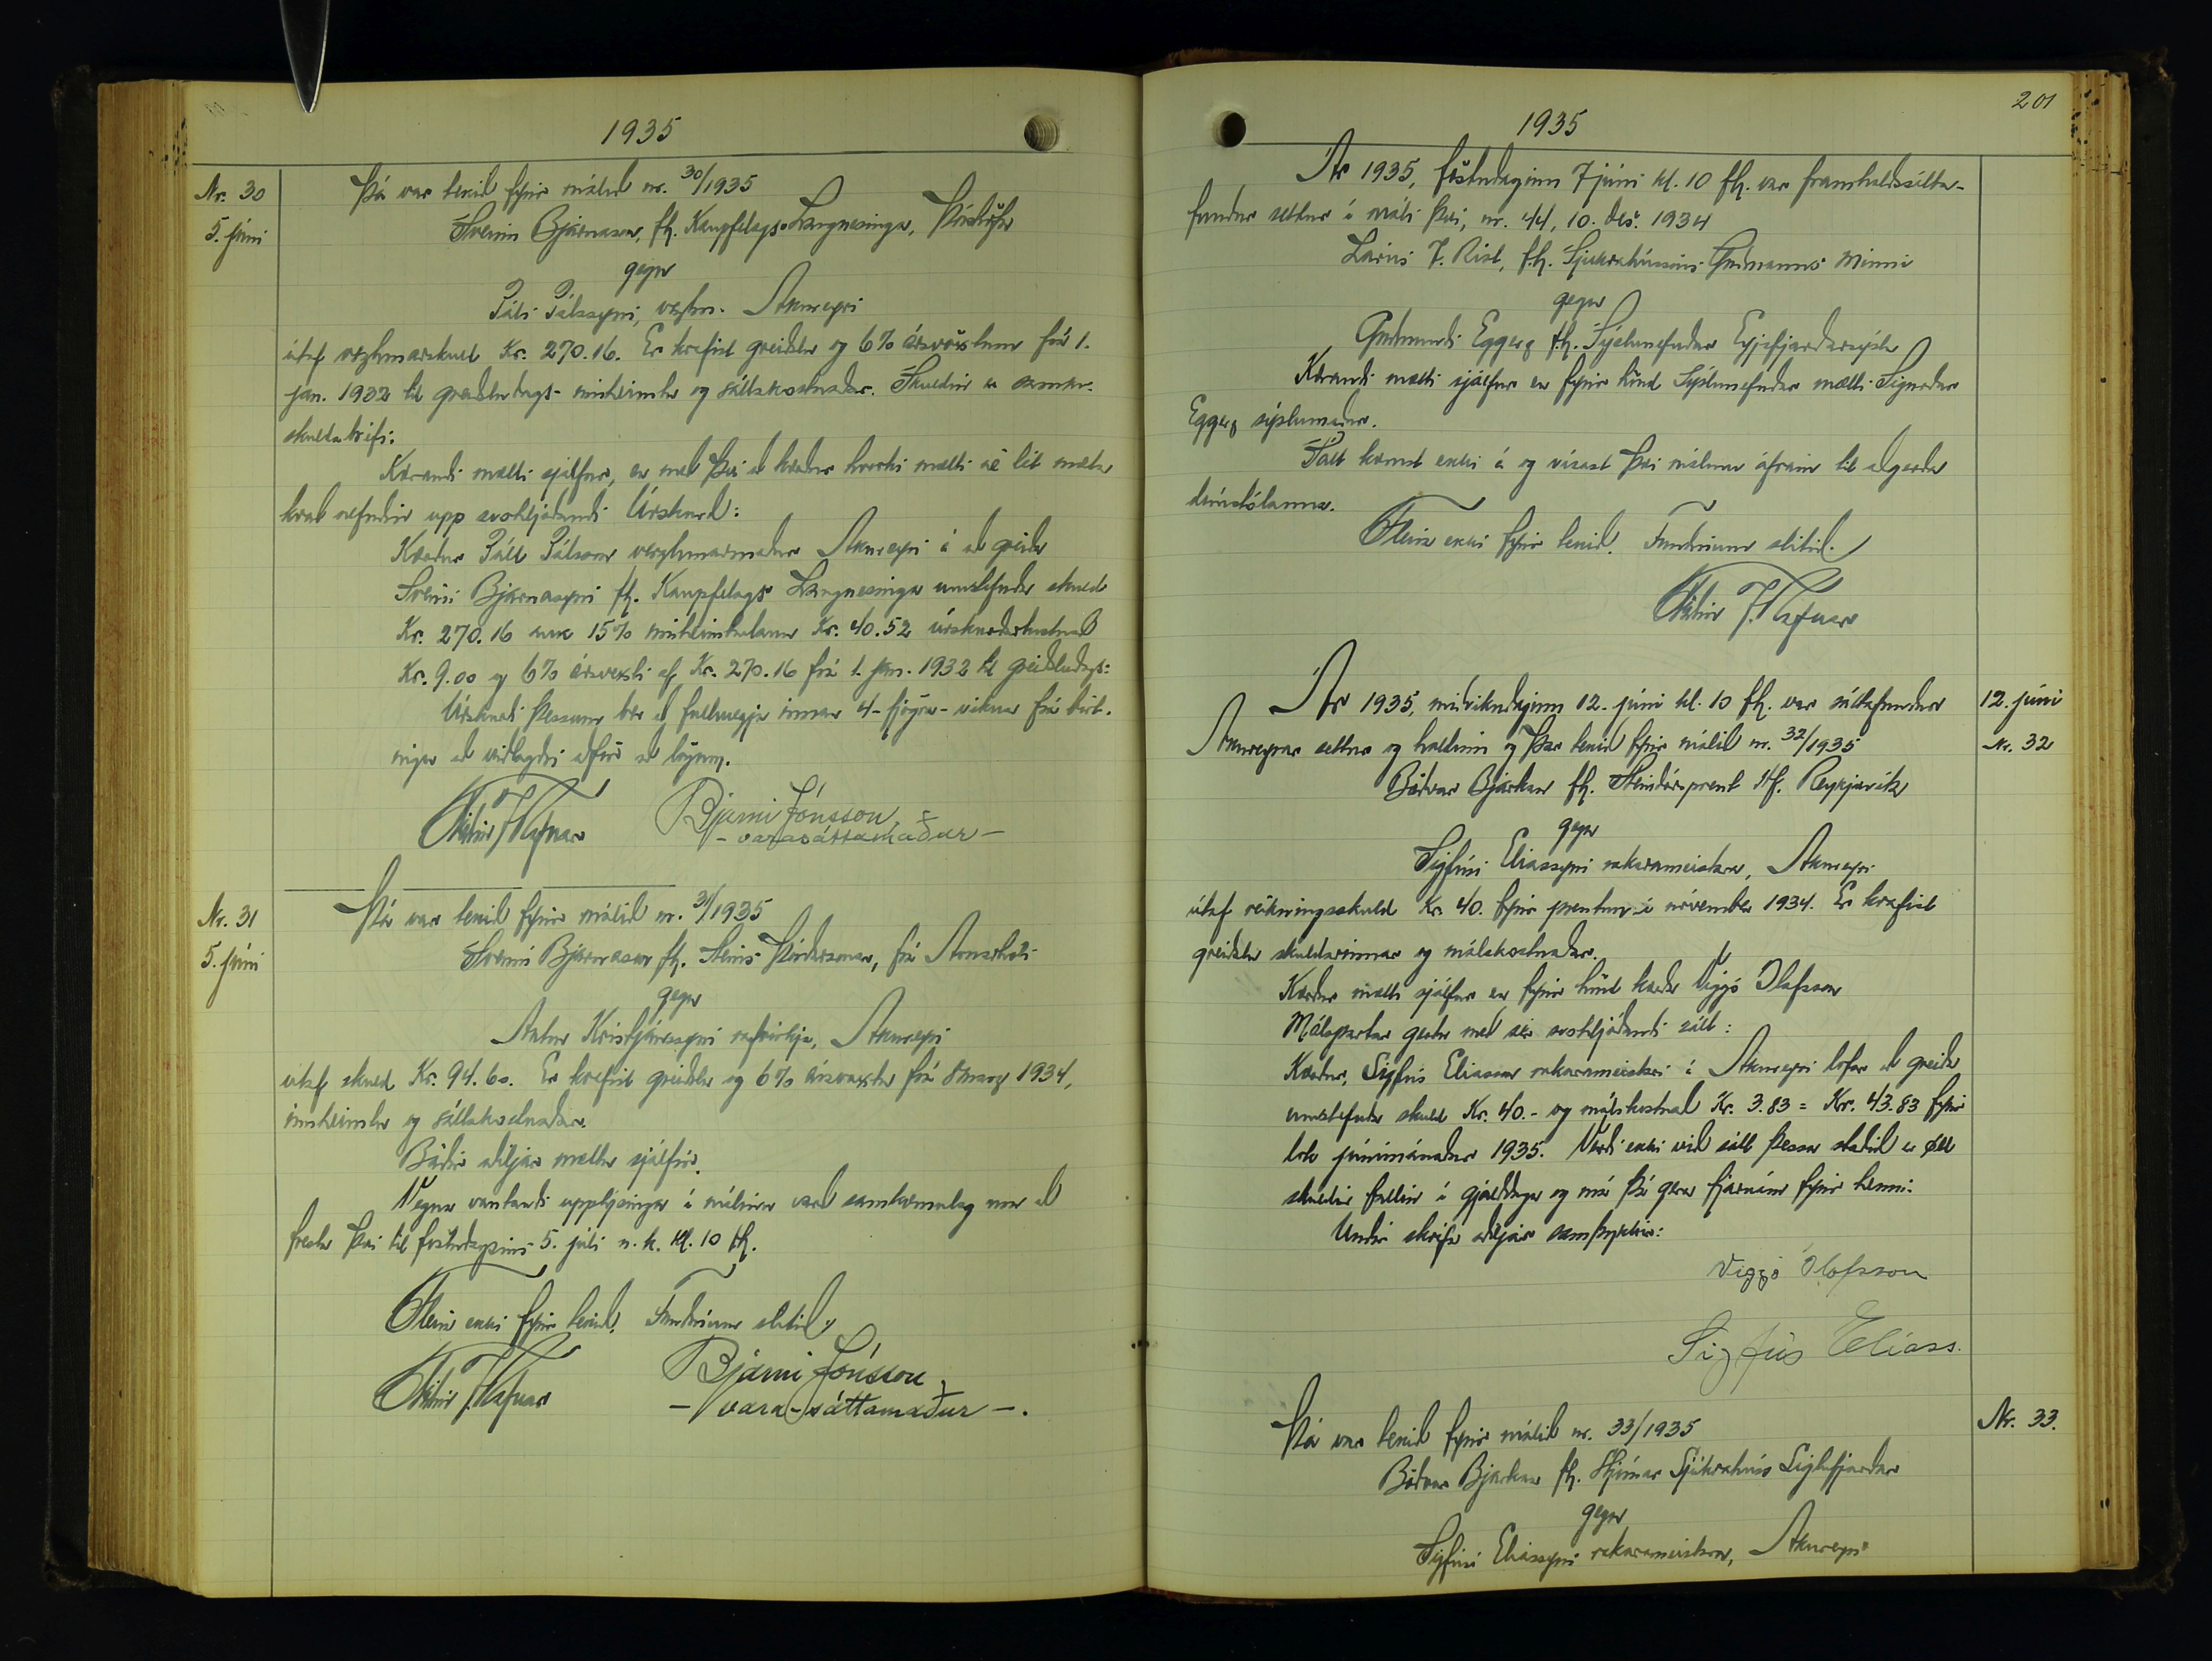 1935
Nr. 30
5. júni
Þá var tekið fyrir málið nr. 30/1935
Sveinn Bjarnason, fh. Kaupfélags Langnesinga, Þórshöfn
gegn
Páli Pálssyni, verzlm. Akureyri
útaf verzlunarskuld Kr. 270.16. Er krafist greiðslu og 6% ársvöxtum frá 1.
jan. 1932 til greiðsludags - innheimtu og sáttakostnaðar. Skuldin er samkv.
skuldabréfi.
Kærandi mætti sjálfur, en með því að kærður hvorki mætti né lét mæta
kvað nefndin upp svohljóðandi Úrskurð:
Kærður Páll Pálsson verzlunarmaður Akureyri á að greiða
Sveini Bjarnasyni fh. Kaupfélags Langnesinga umstefnda skuld
Kr. 270.16 auk 15% innheimtulauna Kr. 40.52 úrskurðarkostnað
Kr. 9.00 og 6% ársvexti af Kr. 270.16 frá 1. jan. 1932 til greiðsludags.
Úrskurði þessum ber að fullnægja innan 4 - fjögra - vikna frá birt-
ingu að viðlagðri aðför að lögum.
Bjarni Jónsson
- varasáttamaður -
Nr. 31
5. júni
Þá var tekið fyrir málið nr. 31/1935
Sveinn Bjarnason fh. Steins Þórðarsonar, frá
gegn
Anton Kristjánssyni rafvirkja, Akureyri
útaf skuld Kr. 94.60. Er krafist greiðslu og 6% ársvaxta frá 1934,
innheimtu og sáttakostnaðar.
Báðir aðiljar mættu sjálfir.
Vegna vantandi upplýsinga í málinu varð samkomulag um að
fresta því til föstudagsins 5. júlí n.k. kl. 10 fh.
Fleira ekki fyrir tekið. Fundinum slitið.
Bjarni Jónsson
- vara-sáttamaður -.
201
1935
Ár 1935, föstudaginn 7 júni kl. 10 fh. var framhaldssátta-
fundur settur í máli því, nr. 44, 10. des. 1934
Lárus J. Rist, f.h. Sjúkrahússins Gudmanns Minni
gegn
Guðmundi Eggerz f.h. Sýslunefndar Eyjafjarðarsýslu
Kærandi mætti sjálfur en fyrir hönd Sýslunefndar mætti Sigurður
Eggerz sýslumaður.
Sátt komst ekki á og vísast því málinu áfram til aðgerða
dómstólanna.
Fleira ekki fyrir tekið. Fundinum slitið.
Ár 1935, miðvikudaginn 12. júni kl. 10 fh. var sáttafundur
12. júni
Akureyrar settur og haldinn og þar tekið fyrir málið nr. 32/1935
Nr. 32
Böðvar Bjarkan fh. Steindórsprent H.f. Reykjavík
gegn
Sigfúsi Elíassyni rakarameistara, Akureyri
útaf reikningsskuld Kr. 40. fyrir prentun í nóvember 1934. Er krafist
greiðslu skuldarinnar og málskostnaðar.
Kærður mætti sjálfur en fyrir hönd kæranda Viggó Ólafsson
Málspartar gerðu með sér svohljóðandi sátt:
Kærður, Sigfús Elíasson rakarameistari í Akureyri lofar að greiða
umstefnda skuld Kr. 40.- og málskostnað Kr. 3.83 = Kr. 43.83 fyrir
lok júnímánaðar 1935. Verði ekki við sátt þessa staðið er öll
skuldin fallin í gjalddaga og má þá gera fjárnám fyrir henni.
Undir skrifa aðiljar samþykkir:
Viggó Ólafsson
Sigfús Elíass.
Nr. 33.
Þá var tekið fyrir málið nr. 33/1935
Böðvar Bjarkan fh. Stjórnar Sjúkrahúss Siglufjarðar
gegn
Sigfúsi Elíassyni rakarameistara, Akureyri